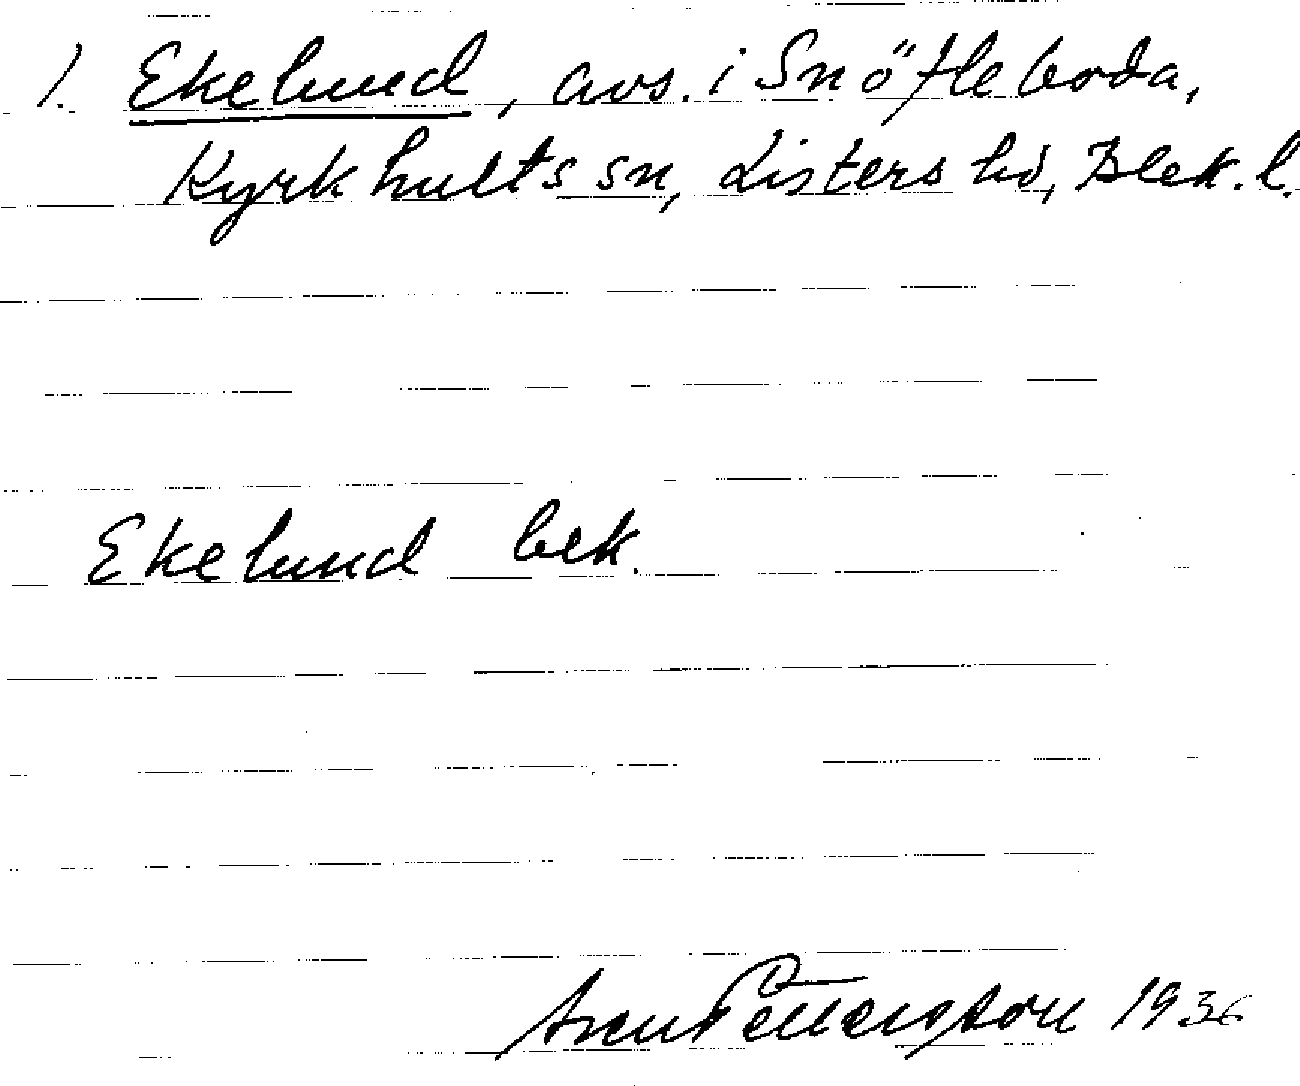 1. Ekelund, avs. i Snöfleboda,
Kyrkhults sn, Listers hd, Blek. l.
Ekelund bek.
Pettersson 1936